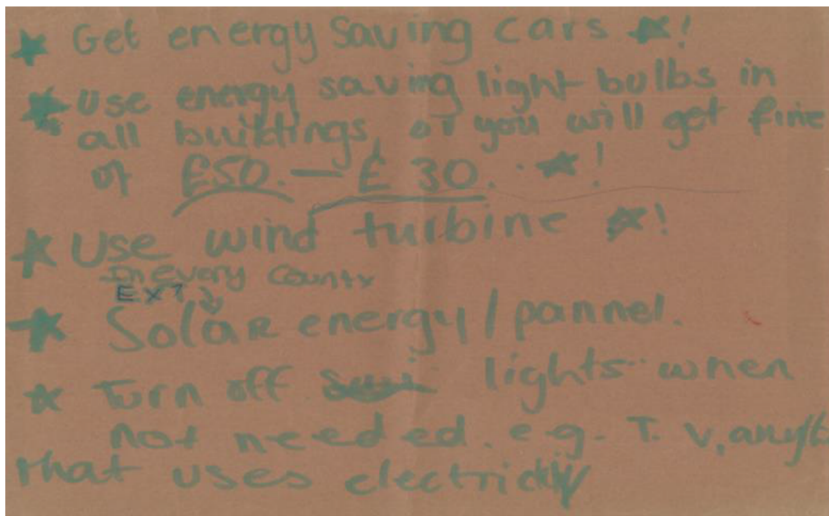 ★ Get energy saving cars ★!
★ Use energy saving light bulbs in
all buildings, or you will get fine
of £50.— £30. ★!
★ Use wind turbine ★!
In every county
EX1
★ Solar energy / pannel.
★ Turn off lights when
not needed. e.g. T.V,
that uses electricity